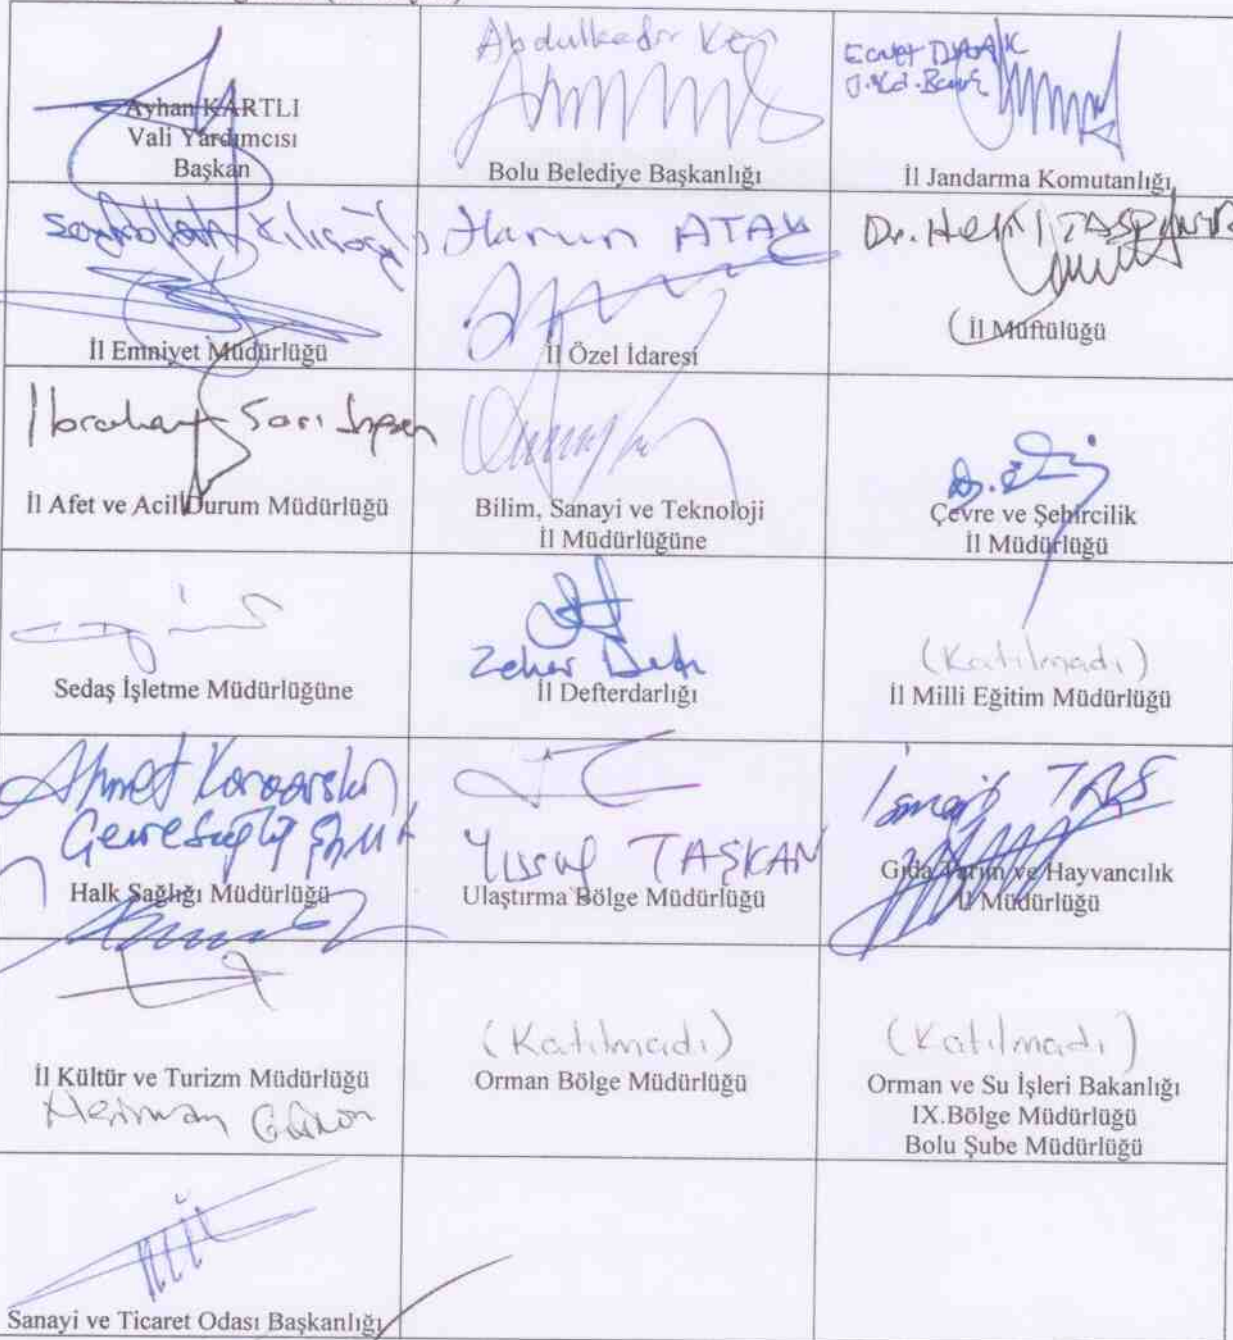 Ayhan KARTLI
Vali Yardımcısı
Başkan
Abdulkadir
Bolu Belediye Başkanlığı
İl Jandarma Komutanlığı
İl Emniyet Müdürlüğü
Harun ATAK
İl Özel İdaresi
Dr.
İl Müftülüğü
İbrahim Sarı
İl Afet ve Acil Durum Müdürlüğü
Bilim, Sanayi ve Teknoloji
İl Müdürlüğüne
Çevre ve Şehircilik
İl Müdürlüğü
Sedaş İşletme Müdürlüğüne
İl Defterdarlığı
(Katılmadı)
İl Milli Eğitim Müdürlüğü
Ahmet Karaarslan
Halk Sağlığı Müdürlüğü
Yusuf TAŞKAN
Ulaştırma Bölge Müdürlüğü
İsmail TAŞ
Gıda Tarım ve Hayvancılık
İl Müdürlüğü
İl Kültür ve Turizm Müdürlüğü
(Katılmadı)
Orman Bölge Müdürlüğü
(Katılmadı)
Orman ve Su İşleri Bakanlığı
IX.Bölge Müdürlüğü
Bolu Şube Müdürlüğü
Sanayi ve Ticaret Odası Başkanlığı